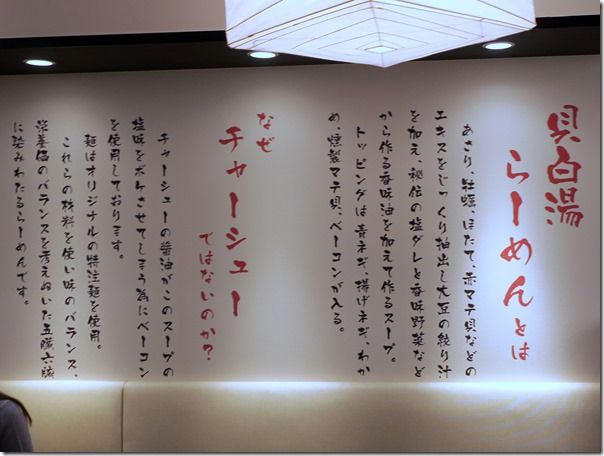 貝白湯
らーめんとは
あさり、牡蠣、ほたて、赤マテ貝などの
エキスをじっくり抽出し大豆の絞り汁
を加え、秘伝の塩ダレと香味野菜など
から作る香味油を加えて作るスープ。
トッピングは青ネギ、揚げネギ、わか
め、燻製マテ貝、ベーコンが入る。
なぜ
チャーシュー
ではないのか?
チャーシューの醤油がこのスープの
塩味をボケさせてしまう為にベーコン
を使用しております。
麺はオリジナルの特注麺を使用。
これらの材料を使い味のバランス、
栄養価のバランスを考えぬいた五臓六腑
に染みわたるらーめんです。